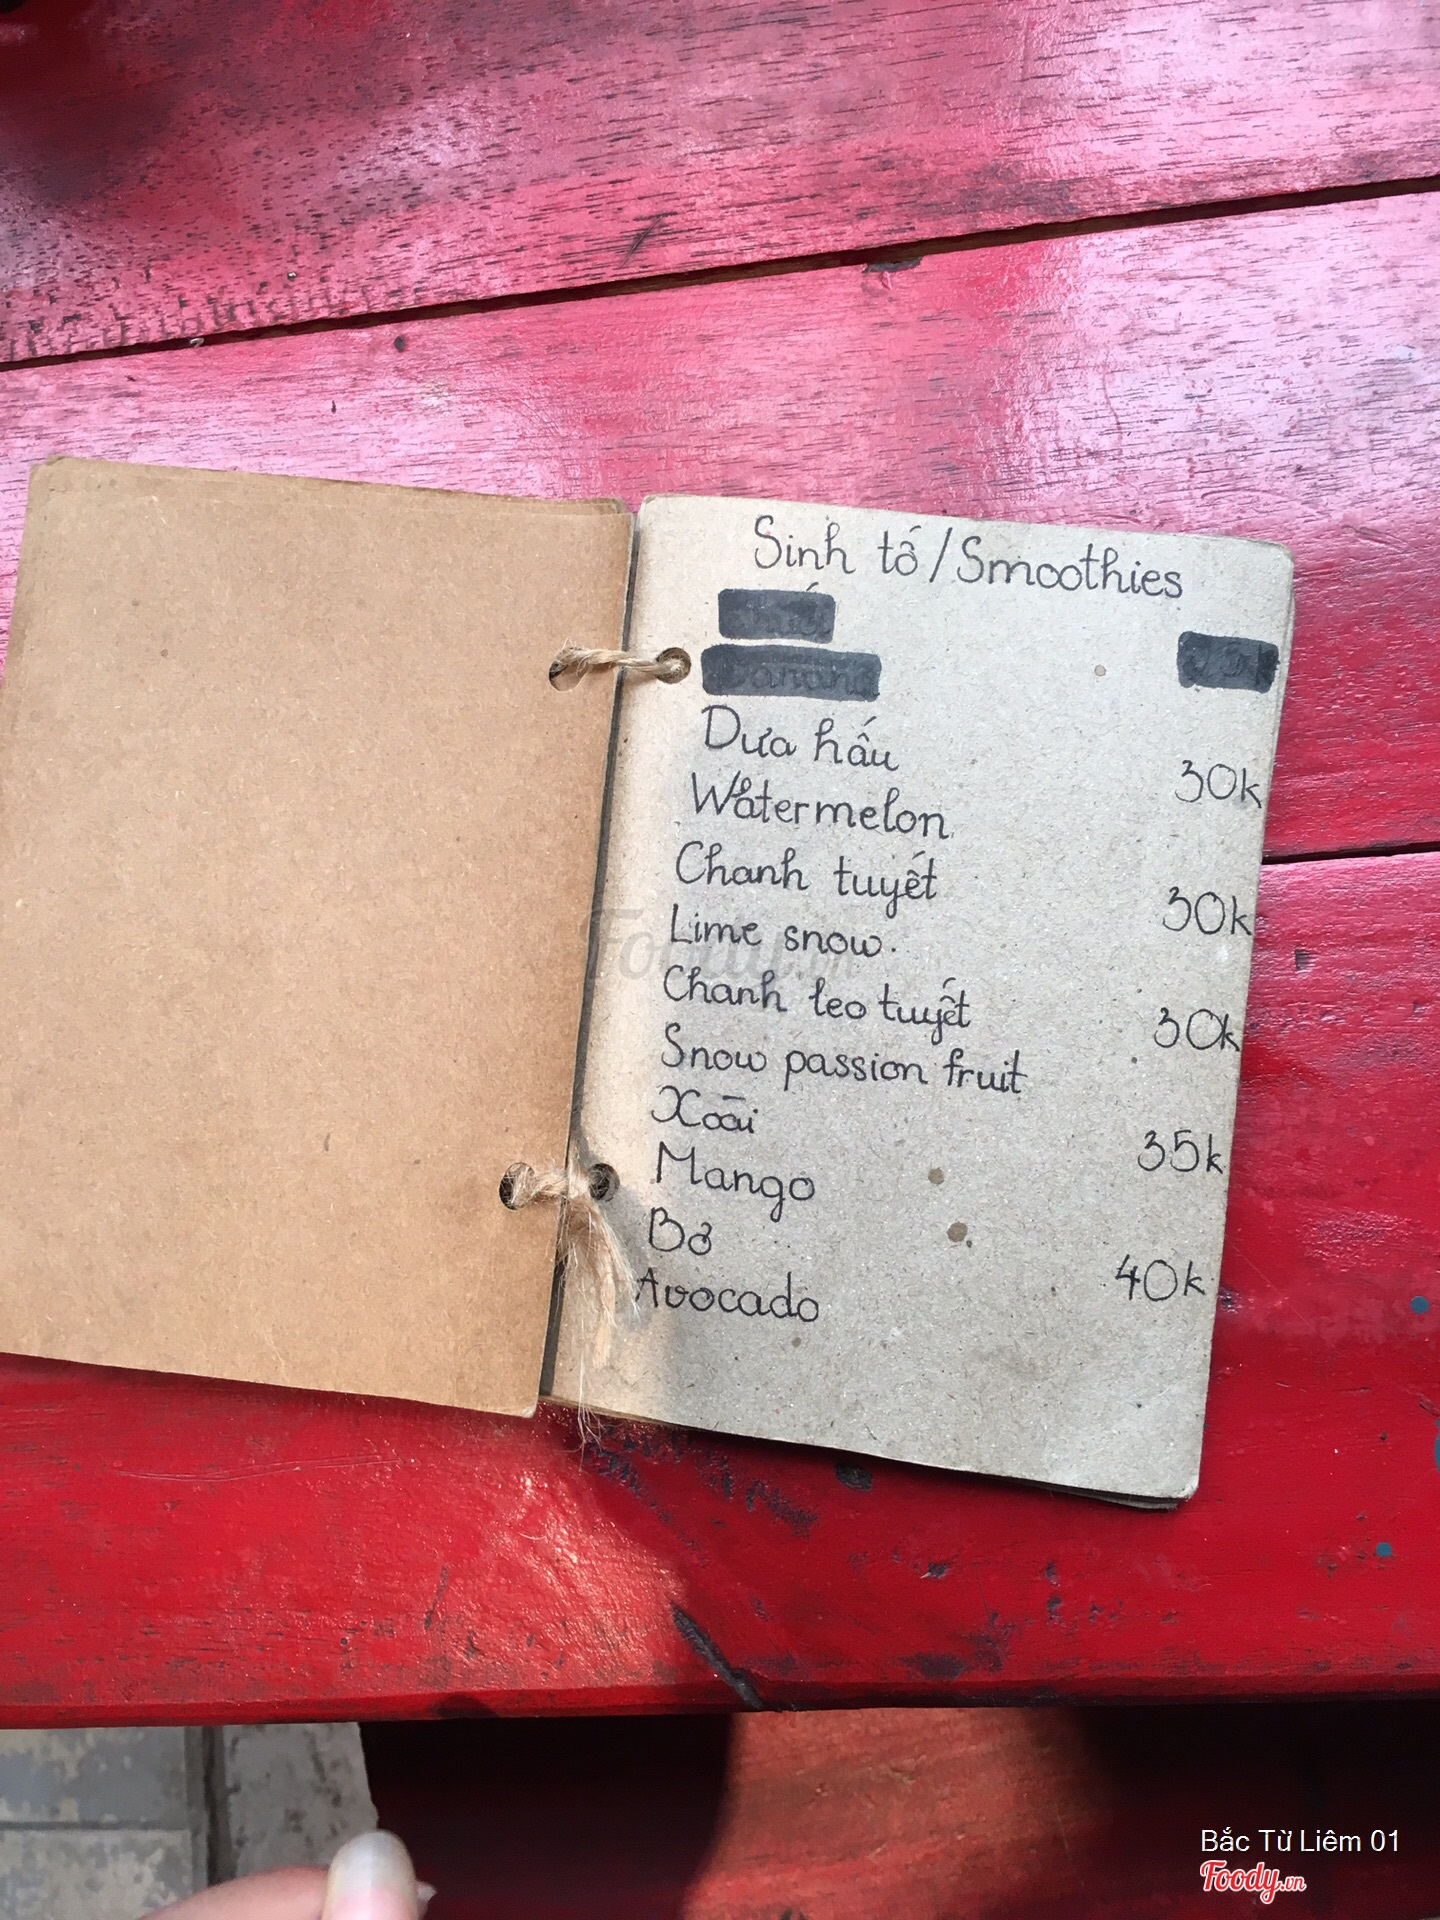 Sinh tố / Smoothies
Dưa hấu
30k
Watermelon
Chanh tuyết
30k
Lime snow.
Chanh leo tuyết
30k
Snow passion fruit
Xoài
35k
Mango
Bơ
40k
Avocado
Foody.vn
Bắc Từ Liêm 01
Foody.vn